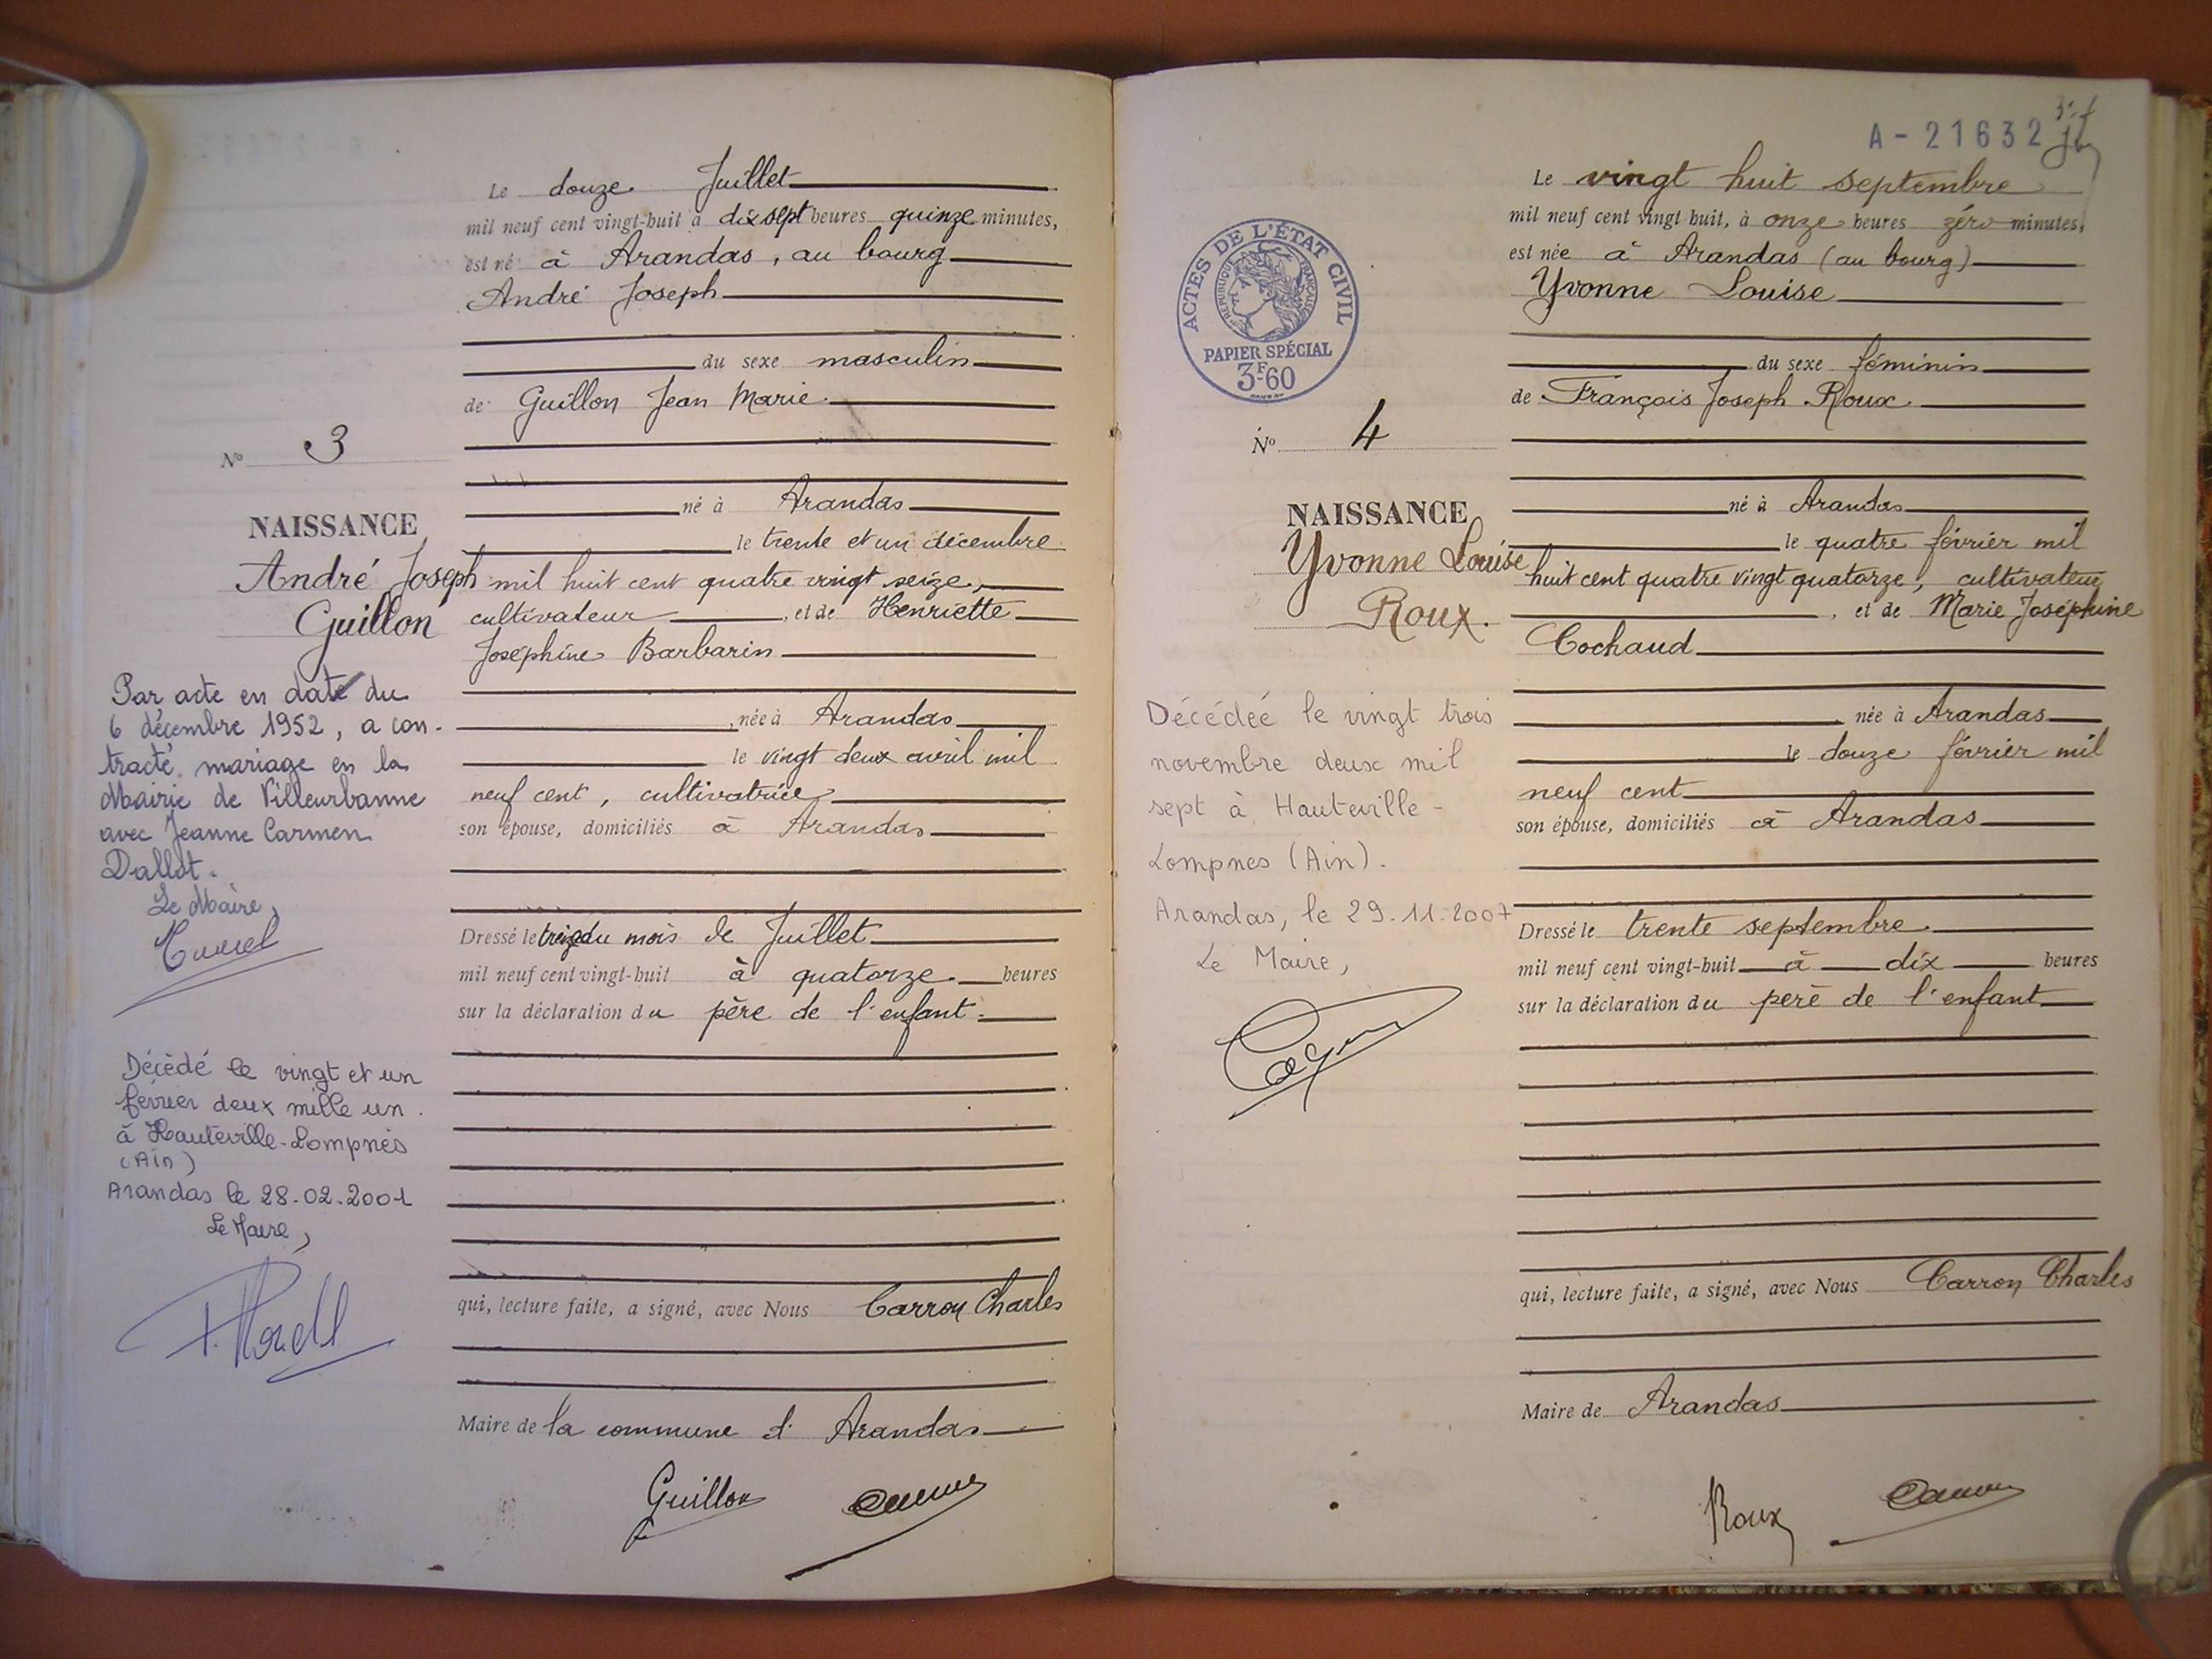 Le douze Juillet
mil neuf cent vingt-huit à dix sept heures quinze minutes,
est né à Arandas, au bourg
André Joseph
du sexe masculin
de Guillon Jean Marie
N° 3
né à Arandas
NAISSANCE
le trente et un décembre
André Joseph
mil huit cent quatre vingt seize,
Guillon
cultivateur, et de Henriette
Joséphine Barbarin
Par acte en date du
6 décembre 1952, a con-
tracté mariage en la
Mairie de Villeurbanne
avec Jeanne Carmen
Dallot.
Le Maire,
née à Arandas
le vingt deux avril mil
neuf cent, cultivatrice
son épouse, domiciliés à Arandas
Dressé le treize du mois de Juillet
mil neuf cent vingt-huit à quatorze heures
sur la déclaration du père de l'enfant.
Décédé le vingt et un
février deux mille un
à Hauteville-Lompnès
(Ain)
Arandas le 28-02-2001
Le Maire,
qui, lecture faite, a signé, avec Nous Carron Charles
Maire de la commune d'Arandas
Guillon
A - 21632
Le vingt huit septembre
mil neuf cent vingt-huit, à onze heures zéro minutes,
est née à Arandas (au bourg)
Yvonne Louise
ACTES DE L'ÉTAT CIVIL
RÉPUBLIQUE FRANÇAISE
PAPIER SPÉCIAL
3F60
du sexe féminin
de François Joseph Roux
N° 4
né à Arandas
NAISSANCE
le quatre février mil
Yvonne Louise
huit cent quatre vingt quatorze, cultivateur
Roux.
, et de Marie Joséphine
Cochaud
Décédée le vingt trois
novembre deux mil
sept à Hauteville-
Lompnes (Ain).
Arandas, le 29.11.2007
Le Maire,
née à Arandas
le douze février mil
neuf cent
son épouse, domiciliés à Arandas
Dressé le trente septembre
mil neuf cent vingt-huit à dix heures
sur la déclaration du père de l'enfant
qui, lecture faite, a signé, avec Nous Carron Charles
Maire de Arandas
Roux